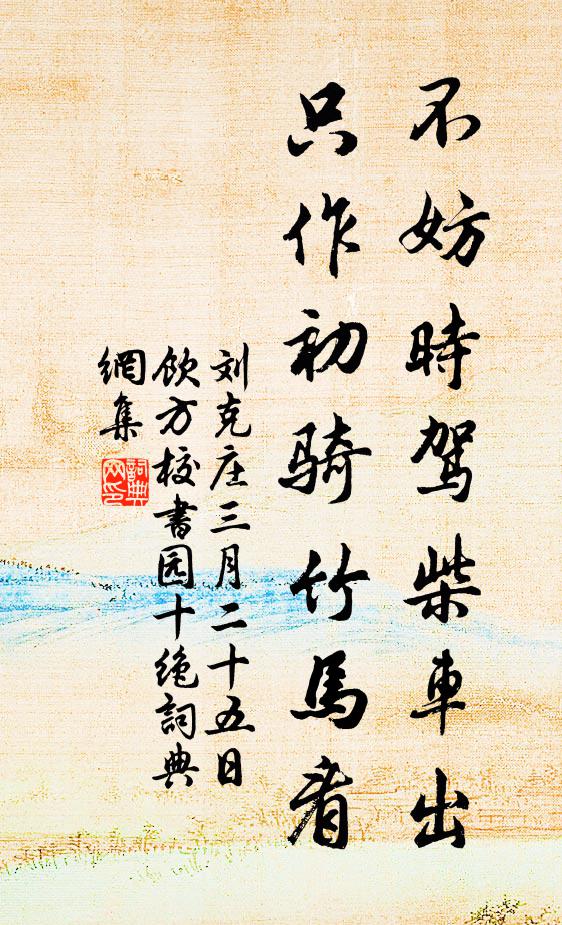 不妨時駕柴車出
只作初骑竹馬看
刘克庄三月二十五日
饮方校書园十绝詞典
網集
詞典
网印